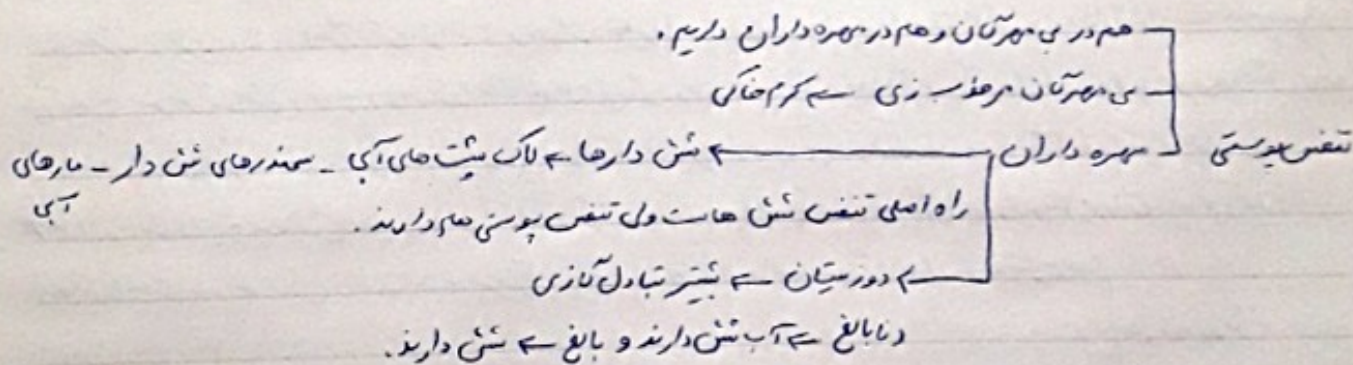 هم در بی مهرگان و هم در مهره داران داریم.
بی مهرگان مرطوب زی ← کرم خاکی
تنفس پوستی مهره داران ← شش دارها ← لاک پشت های آبی - سمندرهای شش دار - مارهای آبی
راه اصلی تنفس شش هاست ولی تنفس پوستی هم دارند.
← دوزیستان ← بیشتر تبادل گازی
نابالغ ← آب شش دارند و بالغ ← شش دارند.